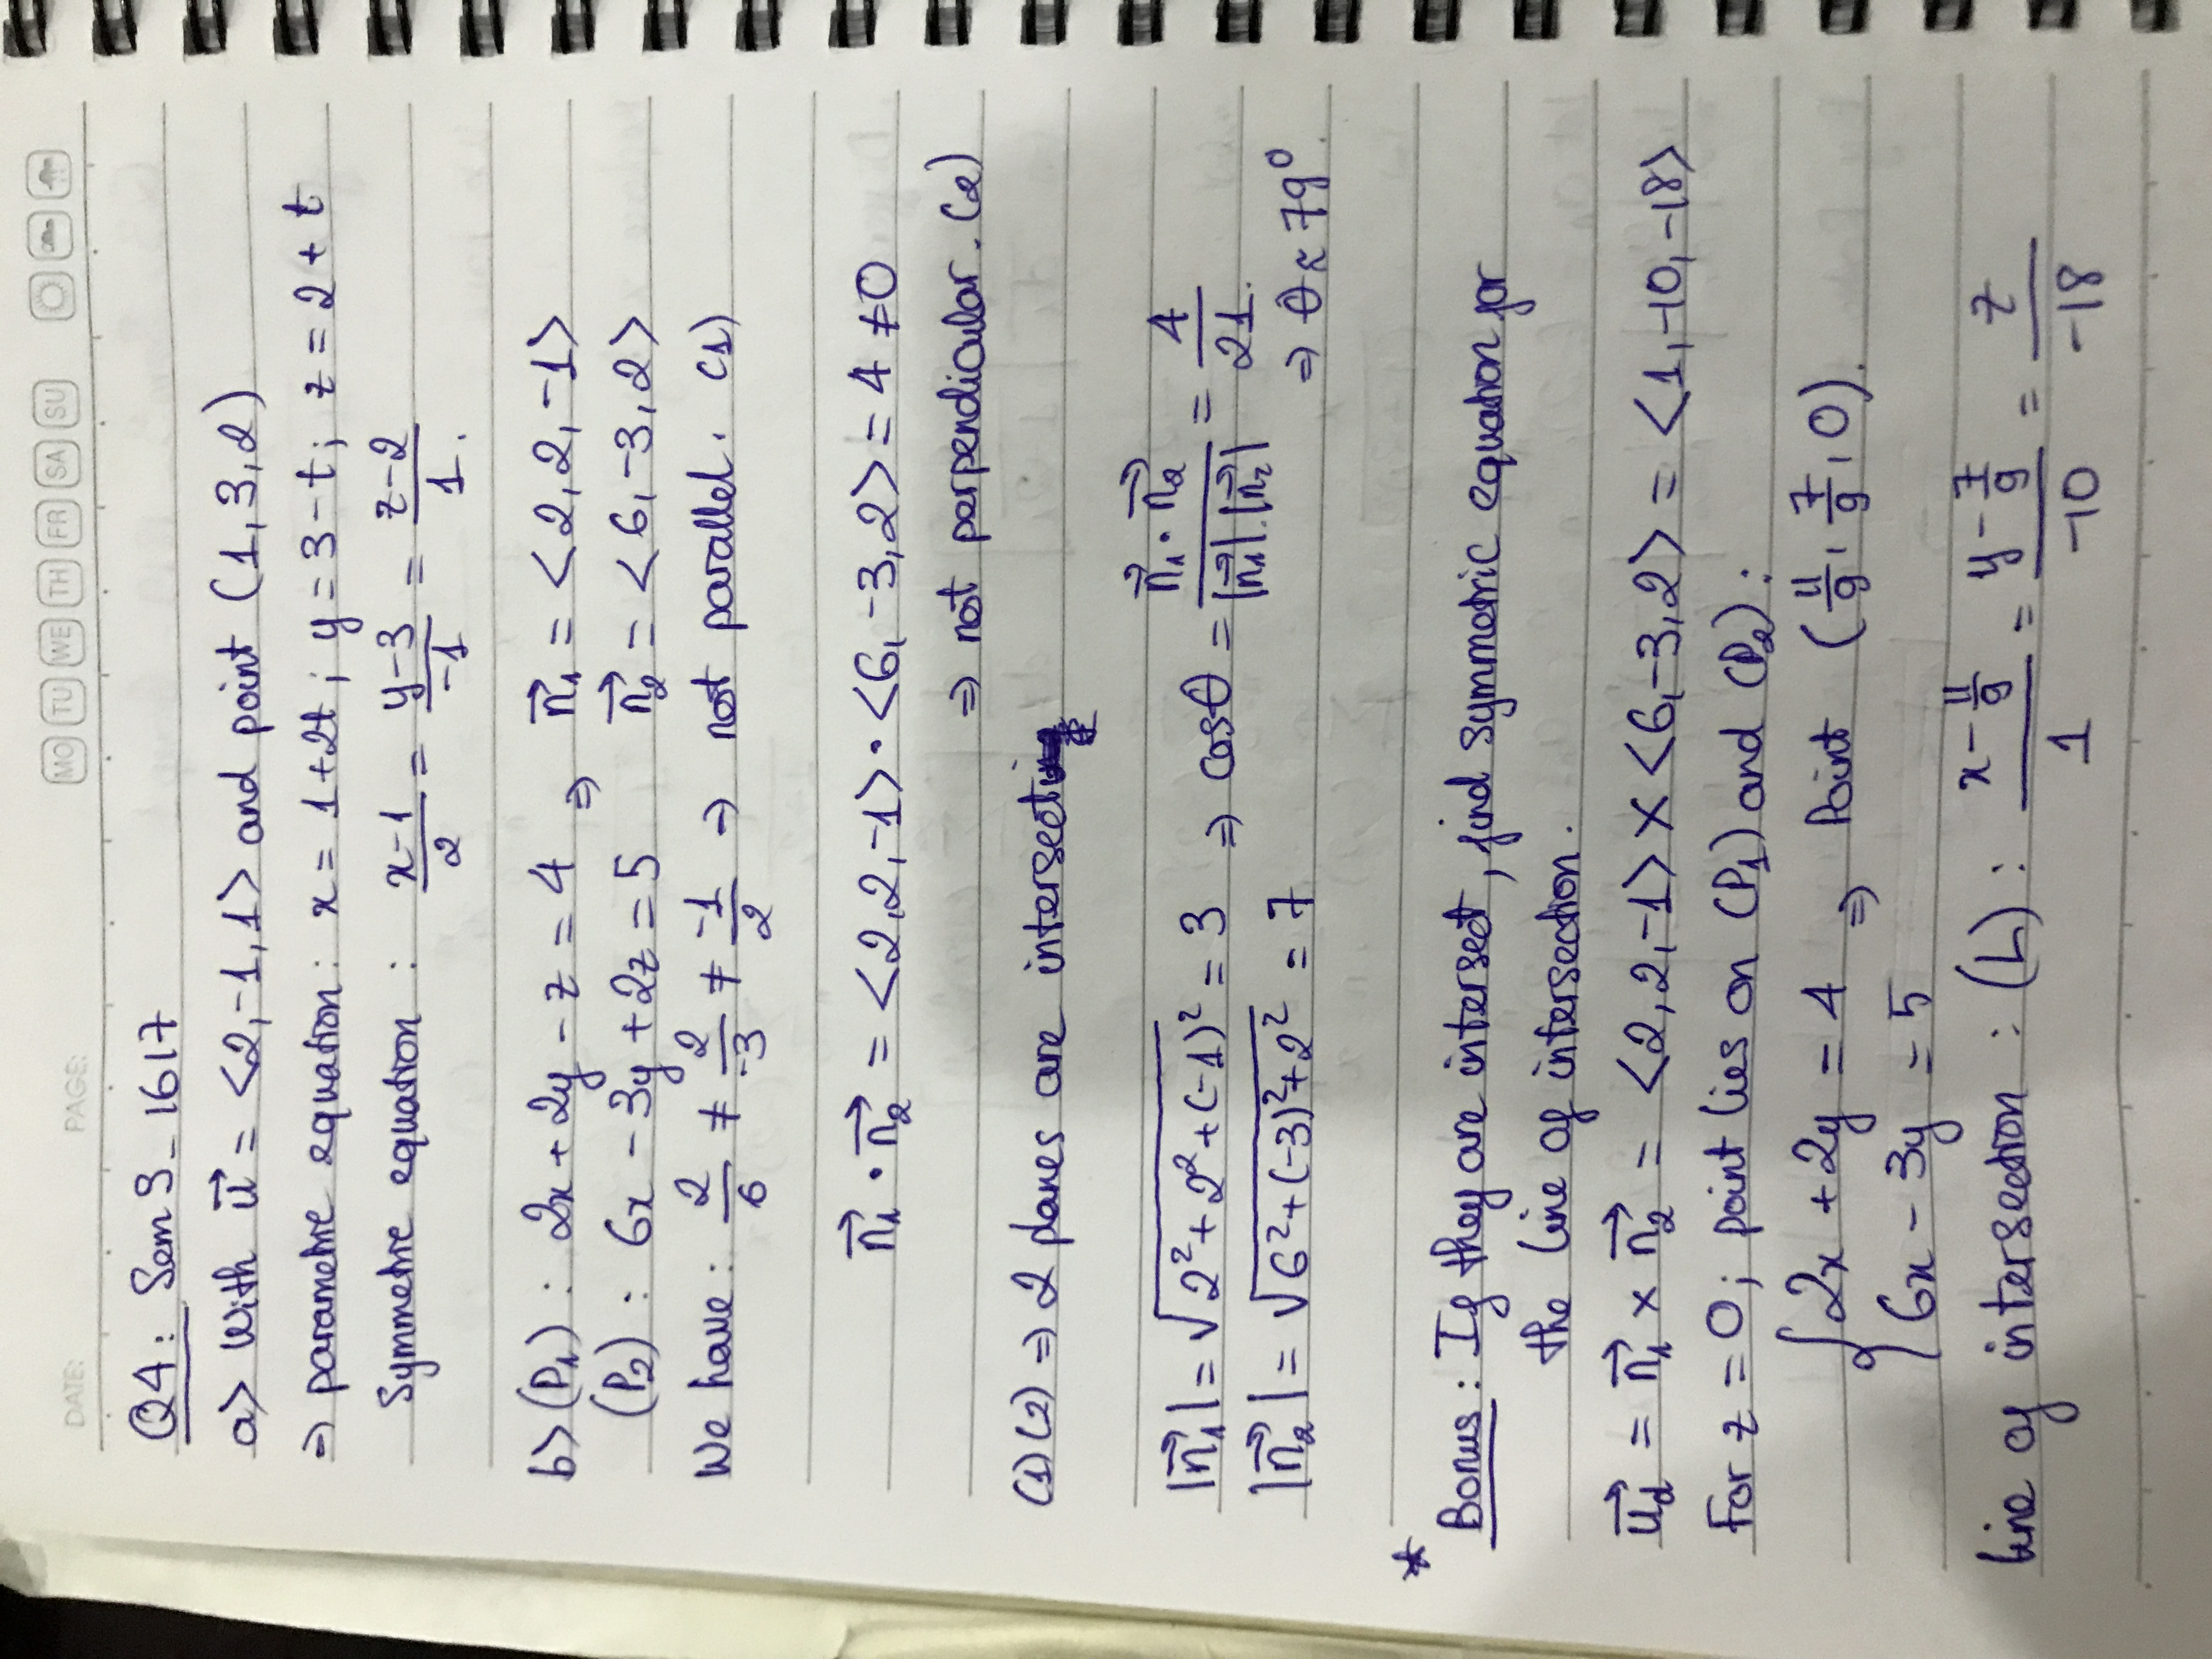 DATE: PAGE: MO TU WE TH FR SA SU
Q4: Sem 3_ 1617
a> With u⃗ = <2,-1,1> and point (1,3,2)
⇒ parametric equation: x = 1+2t ; y = 3-t; z = 2 + t
Symmetric equation : (x-1)/2 = (y-3)/-1 = (z-2)/1.
b> (P₁) : 2x + 2y - z = 4 ⇒ n⃗₁ = <2,2,-1>
(P₂) : 6x - 3y + 2z = 5 n⃗₂ = <6,-3,2>
We have: 2/6 ≠ 2/-3 ≠ -1/2 ⇒ not parallel. (1)
n⃗₁ • n⃗₂ = <2,2,-1> • <6,-3,2> = 4 ≠ 0
⇒ not perpendicular. (2)
(1)(2) ⇒ 2 planes are intersecting
|n⃗₁| = √(2²+2²+(-1)²) = 3 ⇒ cosθ = (n⃗₁ . n⃗₂)/(|n⃗₁|.|n⃗₂|) = 4/21.
|n⃗₂| = √(6²+(-3)²+2²) = 7 ⇒ θ ≈ 79°.
* Bonus: If they are intersect, find symmetric equation for
the line of intersection.
u⃗d = n⃗₁ × n⃗₂ = <2,2,-1> × <6,-3,2> = <1,-10,-18>
For z = 0; point lies on (P₁) and (P₂):
{ 2x + 2y = 4 ⇒ Point (11/9, 7/9, 0).
6x - 3y = 5
line of intersection : (L) : (x - 11/9)/1 = (y - 7/9)/-10 = z/-18